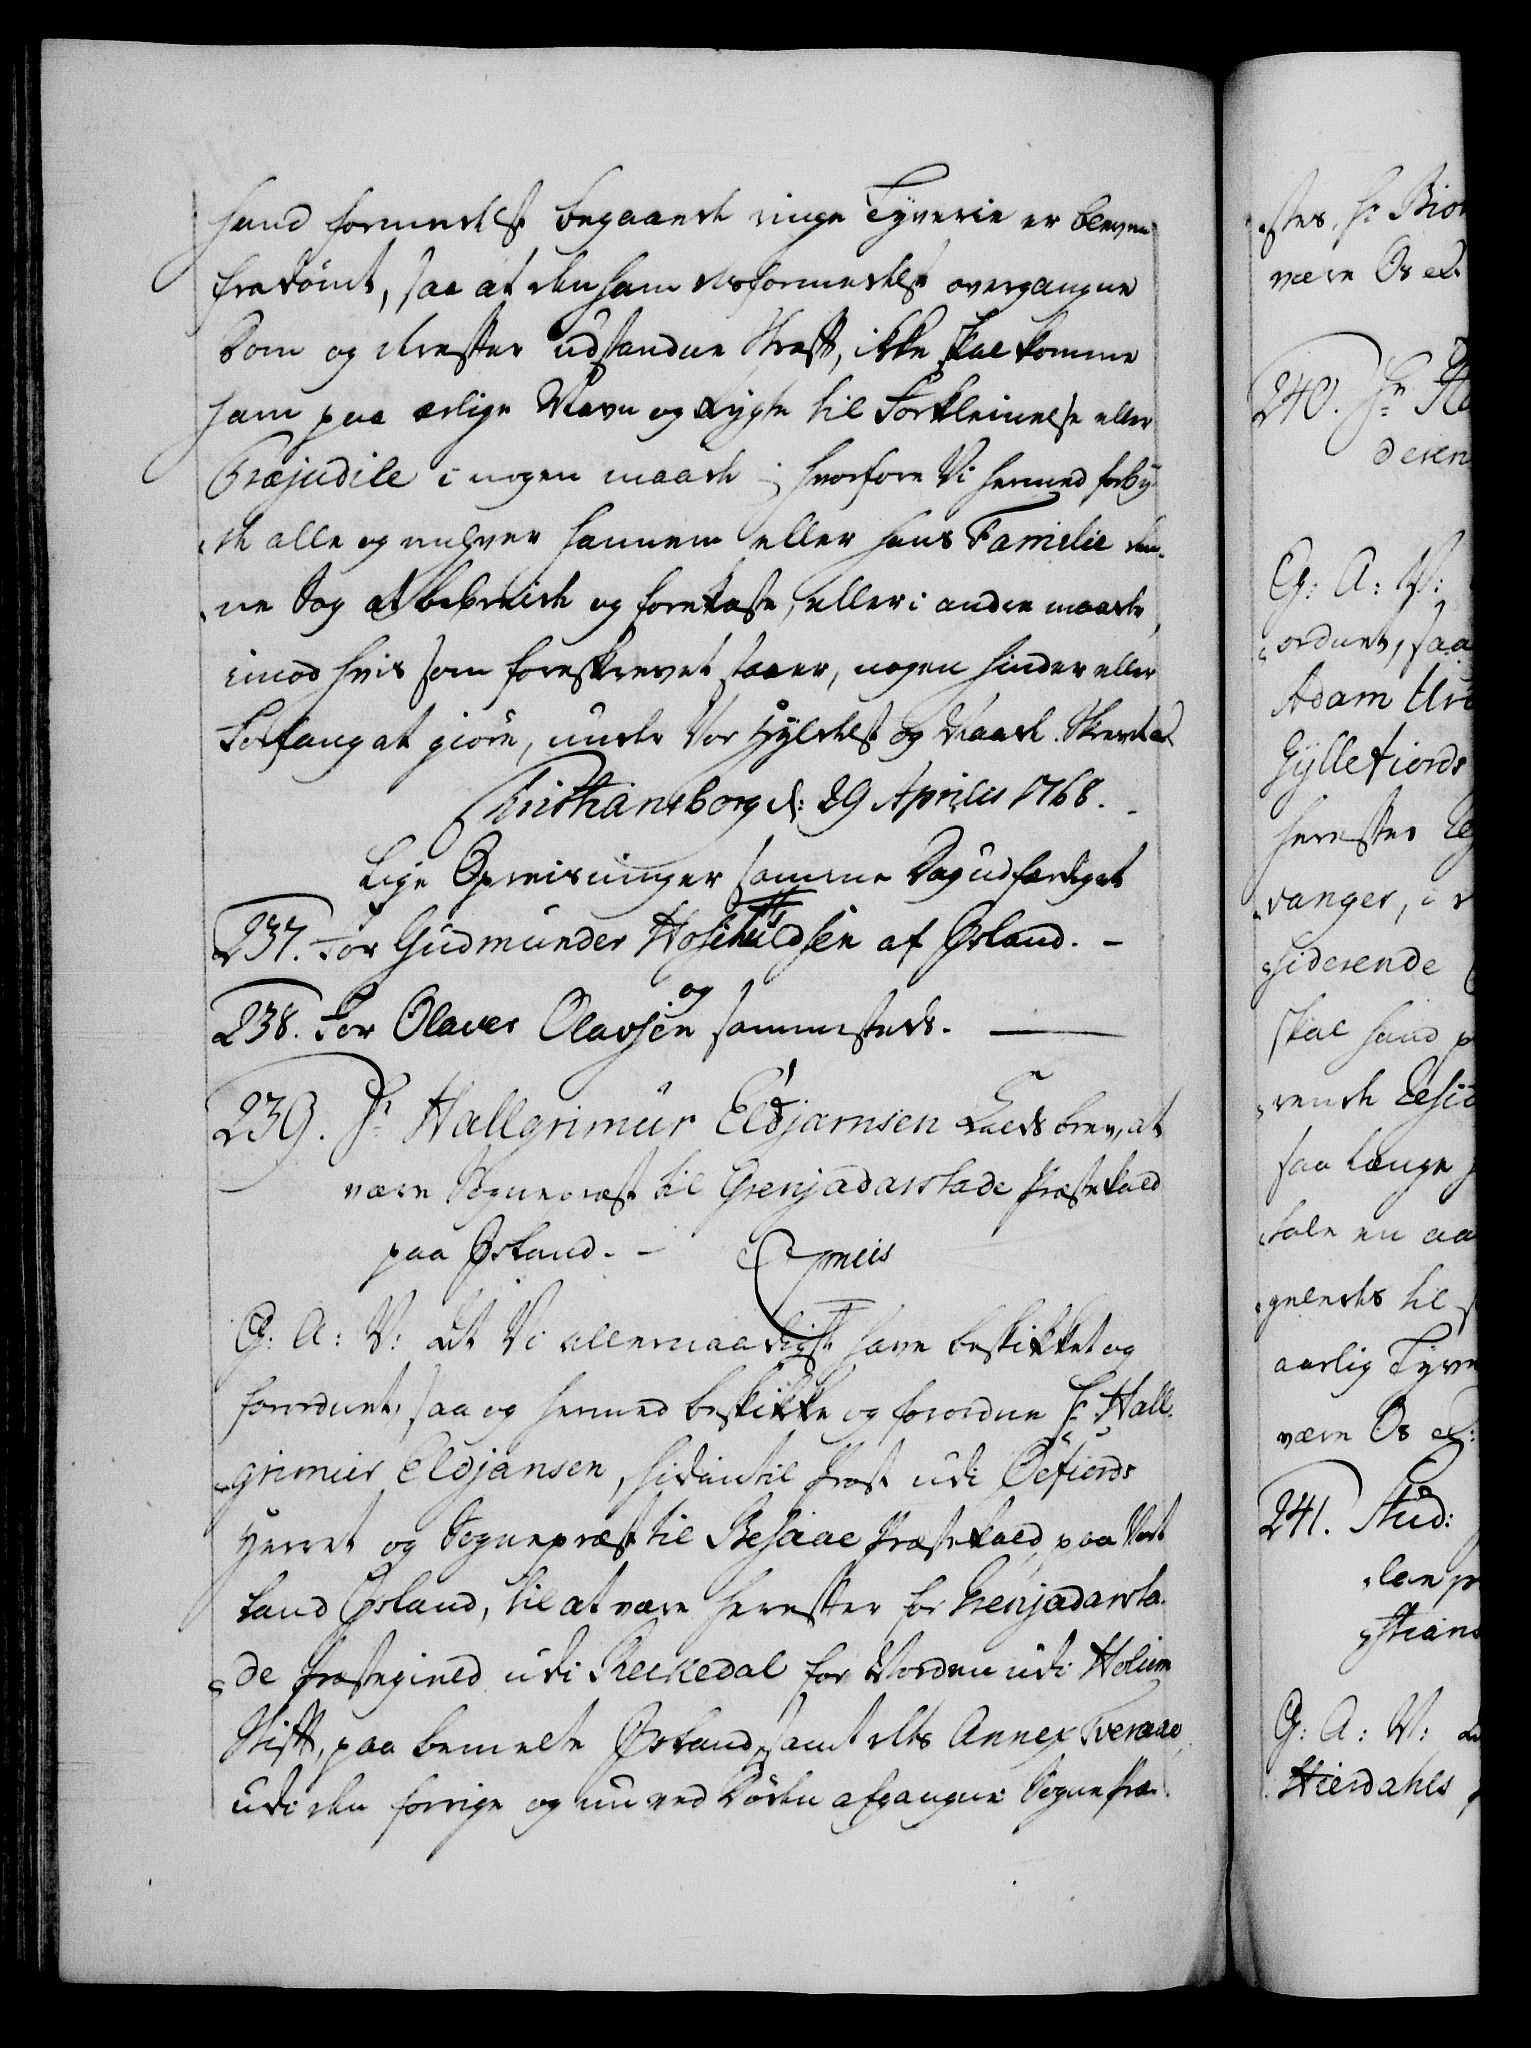 hand formedelst begaaende ringe Tyverie er bleven
fradömt, saa at den ham desformedelst overgangne
Dom og derefter udstandne Straff, ikke skal komme
ham paa ærlige Navn og Rygte til Forkleinelse eller
Præjudice i nogen maade; hvorfore Vi hermed forby-
de alle og enhver hannem eller hans Familie den-
ne Sag at bebreide og forekaste, eller i andre maade,
imod hvis som foreskrevet staaer, nogen hinder eller
Forfang at giöre, under Vor Hyldest og Naade. Skrevet
Christiansborg d: 29 Aprilis 1768.
Lige Opreisninger samme Dag udfærdiget
237. For Gudmunder Hoschuldsen af Øsland. -
og
238. For Olaver Olavsen sammesteds.
239. Hr Hallgrimur Eldjarnsen Kalds brev, at
være Sognepræst til Grenjadarstade Præstekald
paa Øsland. - Gratis
C: A: V: At Vi allernaadigst have beskikket og
forordnet, saa og hermed beskikke og forordne Hr Hall-
grimur Eldjansen, hidindtil Præst udi Öefiords
Herret og Sognepræst til Besaae Præstekald paa Vort
Land Øsland, til at være herefter for Grenjadarsta-
de Præstegield udi Reikedal for Norden udi Holum
Stift, paa bemelte Øsland, samt dets Annex Tveraae
udi den forrige og nu ved Döden afgangne Sognepræ-
stes, Hr Biör
være Os ell
240. Hr
deren
C: A: V:
ordnet, saa
Adam
Gyllefiords
herefter
vanger, i
siderende
skal hand
rende Resid
saa længe
tale en
gelends til
aarlig
være Os
241. Stud:
stians
C: A: V:
Hierdahls